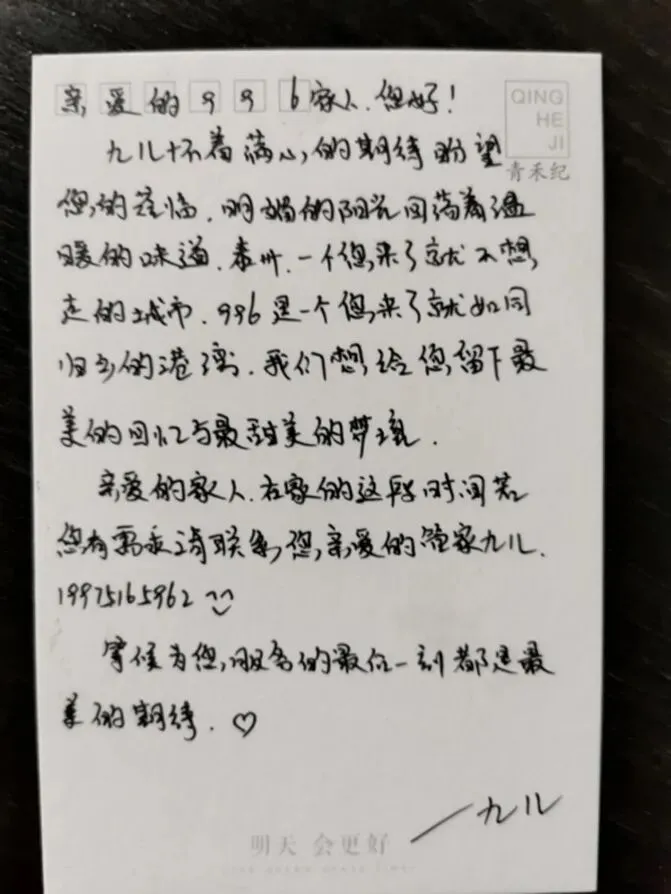 亲爱的996家人.您好!
QING
HE
JI
青禾纪
九儿怀着满心的期待盼望
您的莅临.明媚的阳光回荡着温
暖的味道.泰州.一个您来了就不想
走的城市.996是一个您来了就如同
归乡的港湾.我们想给您留下最
美的回忆与最甜美的梦境.
亲爱的家人.在家的这段时间若
您有需求请联系您亲爱的管家九儿.
19975165962
等候为您服务的最后一刻都是最
美的期待.♡
—九儿
明天 会更好